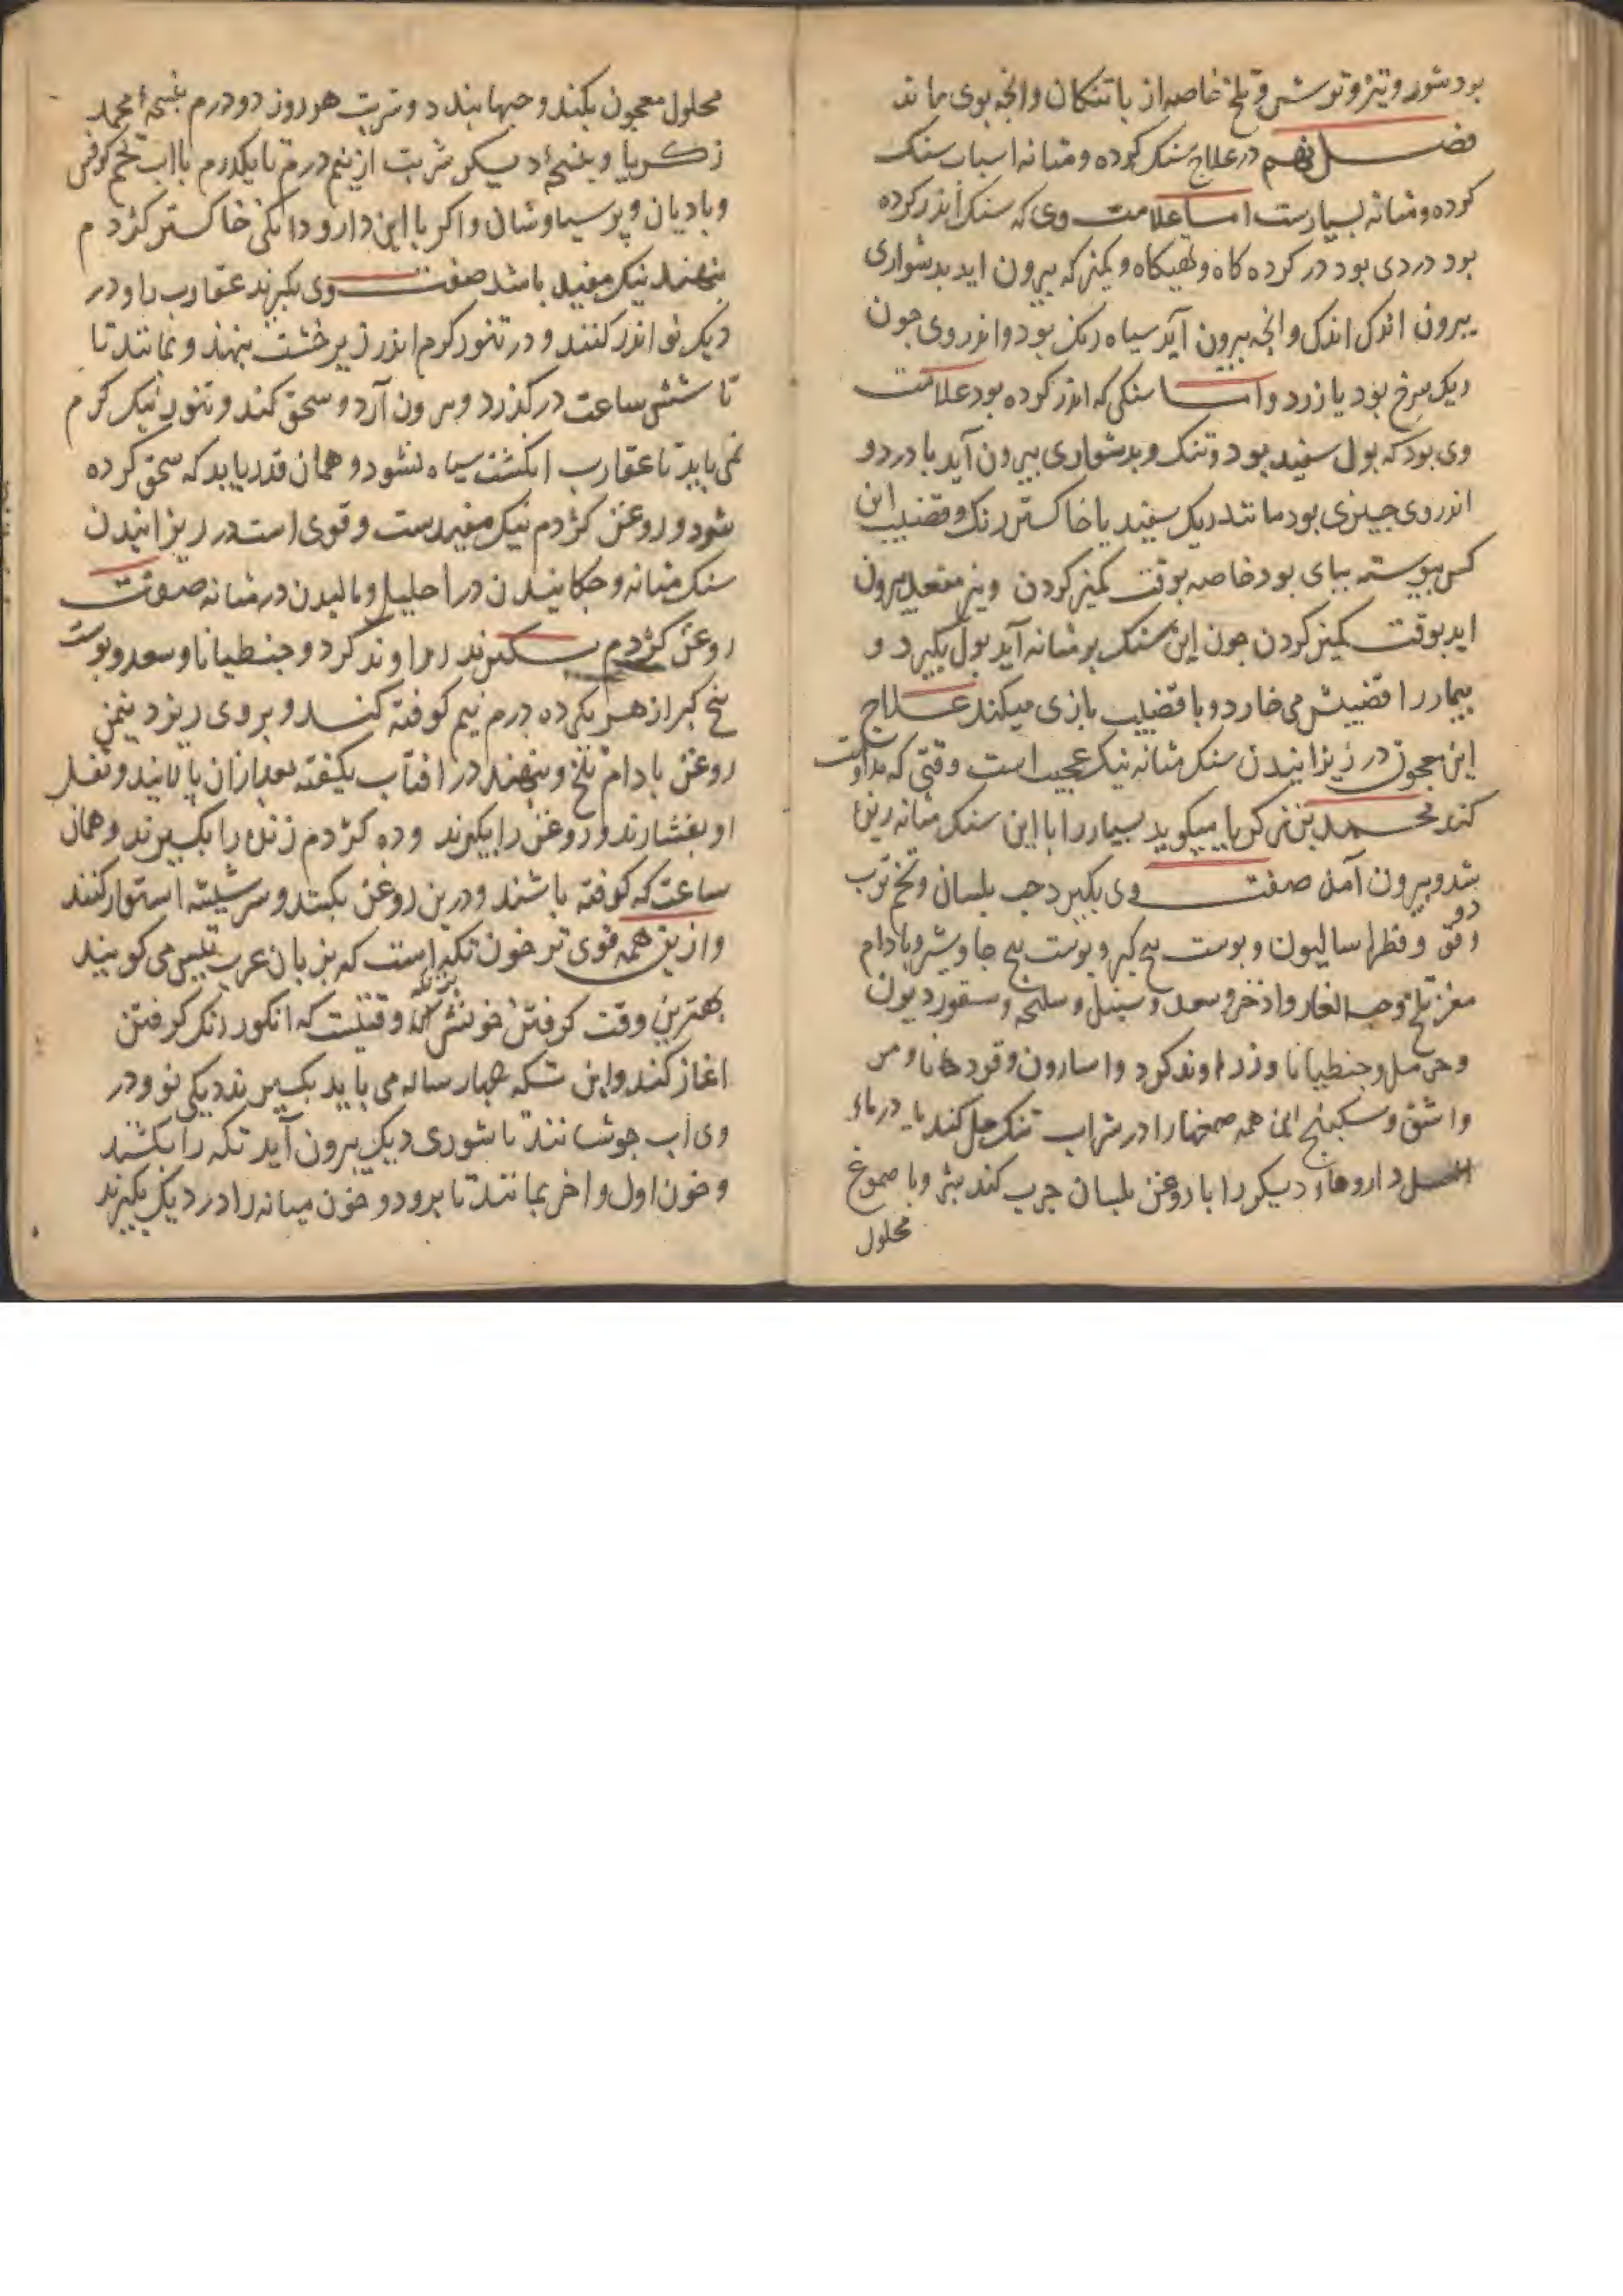 بود شور و تیز و ترش و تلخ خاصه از باتنکان وانجه بوی ماند
فصل نهم در علاج سنک کرده و مثانه اسباب سنک
کرده و مثانه بسیارست اما علامت وی که سنک اندر کرده
بود دردی بود در کرده کاه و تهیکاه و کمیز که بیرون اید بدشواری
بیرون اندک اندک وانجه بیرون آید سیاه رنک بود و اندر وی جون
ریک سرخ بود یا زرد و اما سنکی که اندر کرده بود علامت
وی بود که بول سفید بود و تنک و بدشواری بیرون آید با درد و
اندر وی جیزی بود مانند ریک سفید یا خاکستر رنک و قضیب این
کس پیوسته بپای بود خاصه بوقت کمیز کردن و نیز مقعد بیرون
اید بوقت کمیز کردن جون این سنک بر مثانه آید بول بکیرد و
بیمار را قضیبش می خارد و با قضیب بازی میکند علاج
این معجون در ریزانیدن سنک مثانه نیک عجیب است وقتی که مداومت
کند محمد بن زکریا میکوید بسیار را با این سنک مثانه ریزه
شد و بیرون آمد صفت وی بکیرد حب بلسان و تخم ترب
و دوقو و فطراسالیون و بوست بیخ کبر و بوست بیخ جاوشیر و بادام
مغز تلخ و حب الغار و اذخر و سعد و سنبل و سلیخه و سقوردیون
و حرمل و جنطیانا و زراوند کرد و اسارون و قردمانا و مر
و اشق و سکبینج این همه صمغها را در شراب تنک حل کند یا در ماء
العسل داروهاء دیکر را با روغن بلسان جرب کند بش و با صموغ
محلول
محلول معجون بکنند و حبها بندد و شربت هر روز دو درم بنسخهٔ محمد
زکریا و بنسخهٔ دیکر شربت از نیم درم تا یکدرم با اب تخم کرفس
و بادیان و پرسیاوشان و اکر با این دارو دانکی خاکستر کژدم
بنهند نیک مفید باشد صفت وی بکیرند عقارب را و در
دیک نو اندر کنند و در تنور کرم اندر زیر خشت بنهند و بمانند تا
تا شش ساعت در کذرد و بیرون آرد و سحق کند و تنور نیک کرم
نمی باید تا عقارب انکشت سیاه نشود و همان قدر باید که سحق کرده
شود و روغن کژدم نیک مفیدست و قوی است در ریزانیدن
سنک مثانه و جکانیدن در احلیل و مالیدن در مثانه صفت
روغن کژدم بکیرند زراوند کرد و جنطیانا و سعد و بوست
بیخ کبر از هر یکی ده درم نیم کوفته کنند و بر وی ریزد نیمن
روغن بادام تلخ و بنهند در افتاب یکهفته بعد ازان پالایند و ثفل
او بفشارند و روغن را بکیرند و ده کژدم زنده را بکیرند و همان
ساعت که کوفته باشند و درین روغن بکنند و سر شیشه استوار کنند
و ازین همه قوی تر خون تکه است که بزبان عرب تیس می کویند
بهترین وقت کرفتن خونش ان وقتیست که انکور رنک کرفتن
اغاز کند و این تکه جهار ساله می باید بکیرند دیکی نو و در
وی اب جوشانند تا شوری دیک بیرون آید تکه را بکشند
و خون اول و اخر بمانند تا برود و خون میانه را در دیک بکیرند